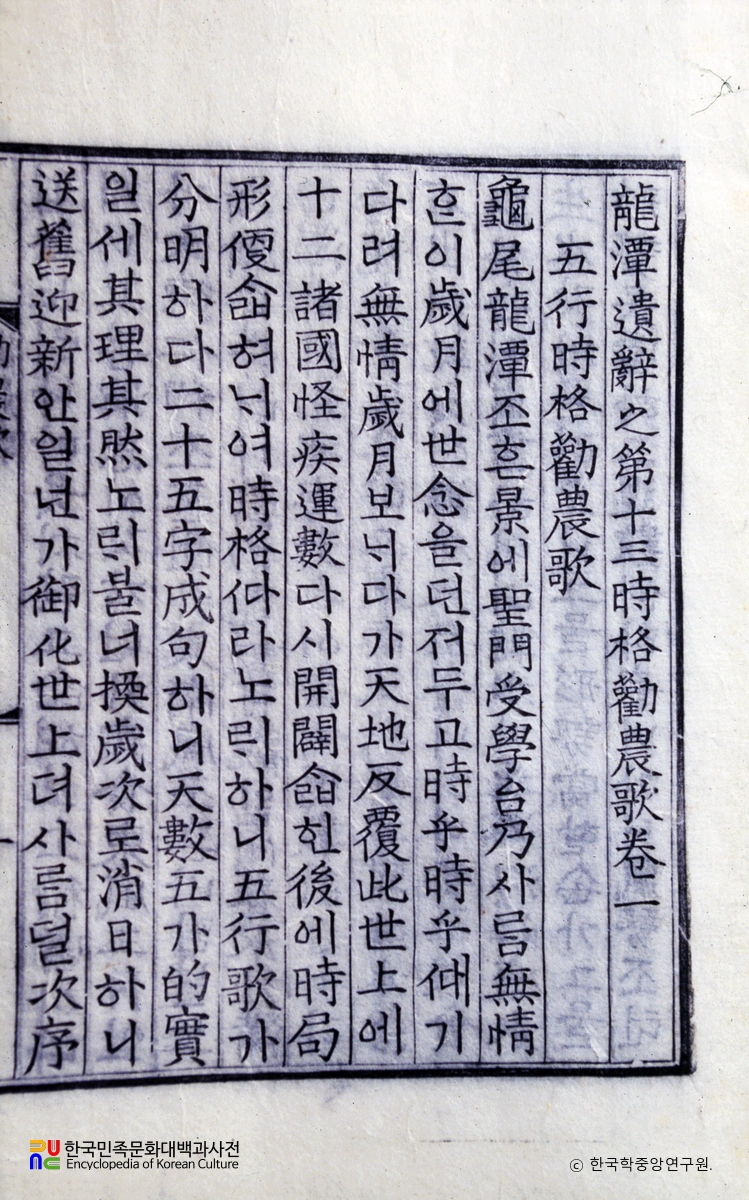 龍潭遺辭之第十三時格勸農歌卷一
五行時格勸農歌
龜尾龍潭죠흔景에聖門受學台乃사름無情
흔이歲月에世念을던져두고時乎時乎때기
다려無情歲月보너다가天地反覆此世上에
十二諸國怪疾運數다시開闢合헌後에時局
形便合혀너여時格따라노리하니五行歌가
分明하다二十五字成句하니天數五가的實
일세其理其然노리불너換歲次로消日하니
送舊迎新안일넌가御化世上뎌사름덜次序
한국민족문화대백과사전
Encyclopedia of Korean Culture
© 한국학중앙연구원.